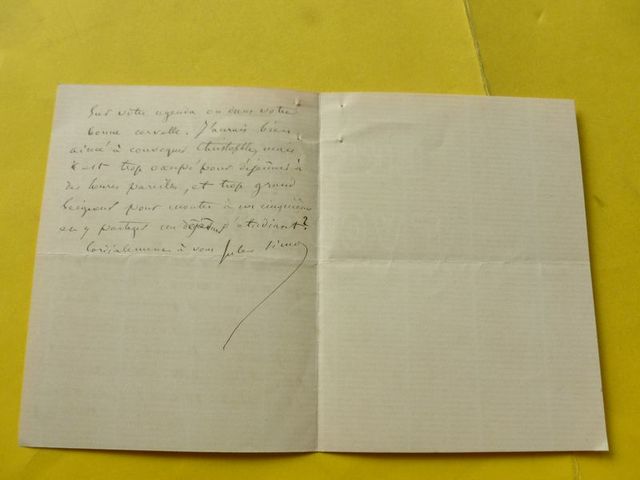 sur votre agenda ou dans votre
bonne cervelle. J'aurais bien
aimé à convoquer Christophle, mais
il est trop occupé pour déjeuner à
des heures pareilles, et trop grand
Seigneur pour monter à un cinquième
et y partager un déjeuner d'étudiant?
Cordialement à vous Jules Simon